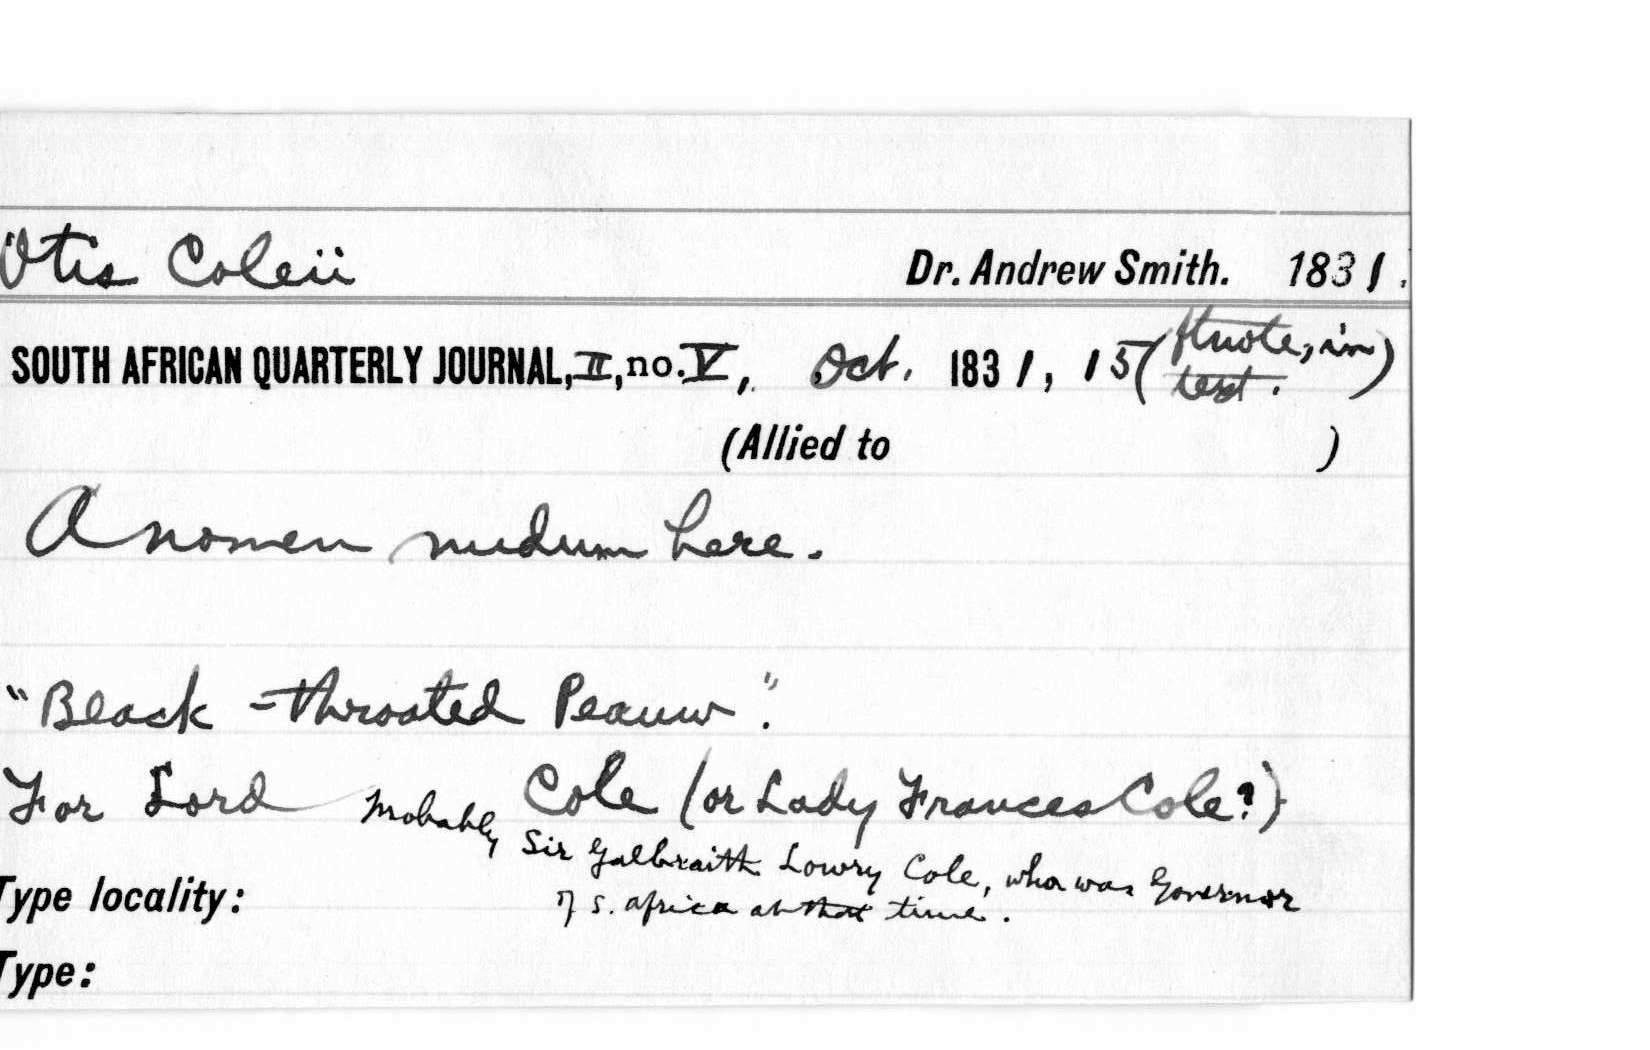 Otis Coleii Dr. Andrew Smith. 1831.
SOUTH AFRICAN QUARTERLY JOURNAL, II, no. V, Oct. 1831, 15 (ftnote, in text.)
(Allied to )
A nomen nudum here.
"Black-throated Peauw".
For Lord Cole (or Lady Frances Cole?)
Probably Sir Galbraith Lowry Cole, who was Governor
of S. Africa at that time.
Type locality:
Type: